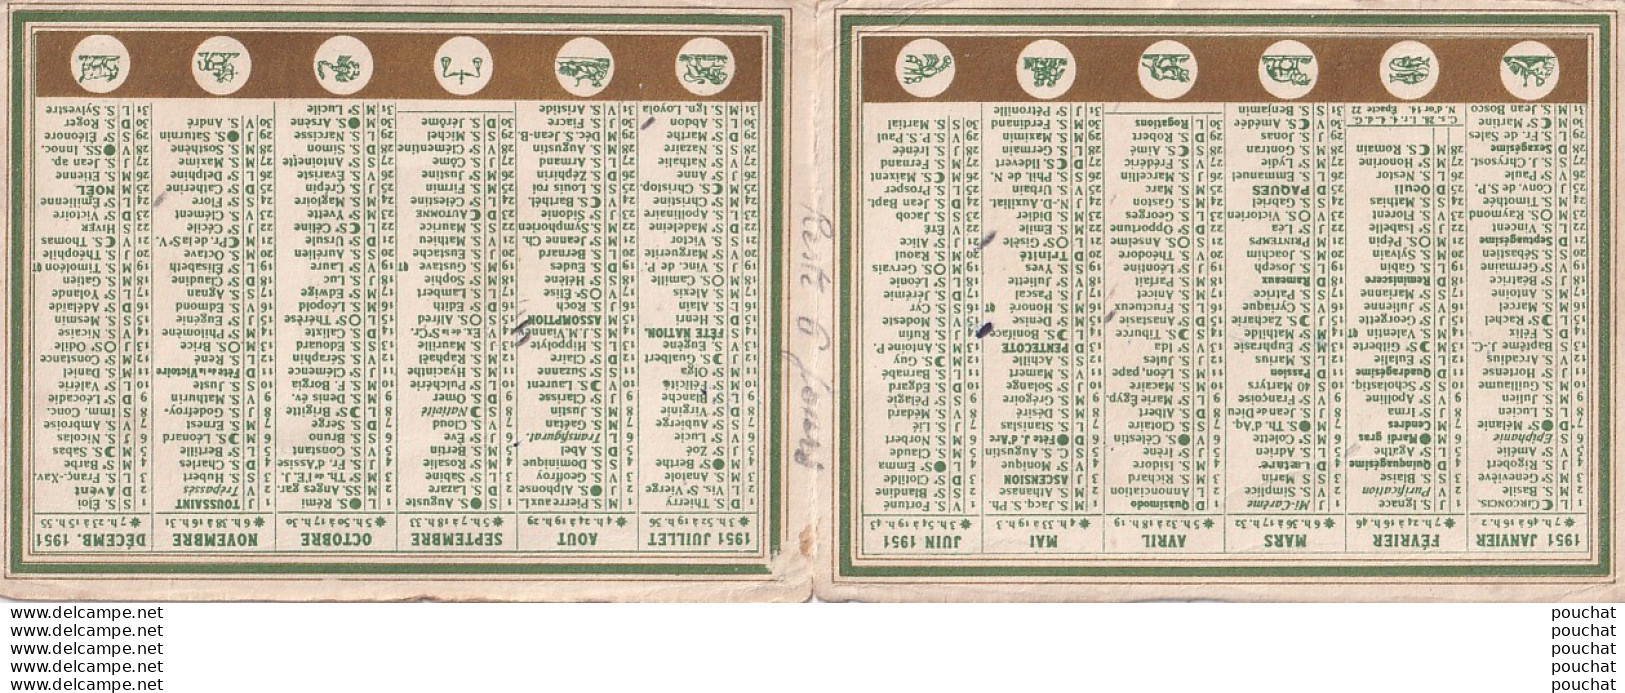 1951 JANVIER
7 h. 46 à 16 h. 2
1 L CIRCONCIS.
2 M S. Basile
3 M Sᵉ Geneviève
4 J S. Rigobert
5 V Sᵉ Amélie
6 S Epiphanie
7 D Sᵉ Mélanie
8 L S. Lucien
9 M S. Julien
10 M S. Guillaume
11 J Sᵉ Hortense
12 V S. Arcadius
13 S Baptême J.-C.
14 D S. Félix
15 L Sᵉ Rachel
16 M S. Marcel
17 M S. Antoine
18 J Sᵉ Béatrice
19 V S. Germaine
20 S S. Sébastien
21 D Septuagésime
22 L S. Vincent
23 M S. Raymond
24 M S. Timothée
25 J Conv. de S.P.
26 V Sᵉ Paule
27 S S. J. Chrysost.
28 D Sexagésime
29 L S. Fr. de Sales
30 M Sᵉ Martine
31 M S. Jean Bosco
FÉVRIER
7 h. 24 à 16 h. 46
1 J S. Ignace
2 V Purification
3 S S. Blaise
4 D Quinquagésime
5 L Sᵉ Agathe
6 M Mardi gras
7 M Cendres
8 J Sᵉ Irma
9 V Sᵉ Apolline
10 S Sᵉ Scholastiq.
11 D Quadragésime
12 L Sᵉ Eulalie
13 M Sᵉ Gilberte
14 M S. Valentin QT
15 J Sᵉ Georgette
16 V Sᵉ Julienne
17 S Sᵉ Marianne
18 D Reminiscere
19 L S. Gabin
20 M S. Sylvain
21 M S. Pépin
22 J Sᵉ Isabelle
23 V S. Florent
24 S S. Mathias
25 D Oculi
26 L S. Nestor
27 M Sᵉ Honorine
28 M S. Romain
C.s. 28. l. r. 4. L. d. G.
N. d'or 14. Epacte 22
MARS
6 h. 36 à 17 h. 32
1 J Mi-Carême
2 V S. Simplice
3 S S. Marin
4 D Lætare
5 L
6 M Sᵉ Colette
7 M S. Th. d'Aq.
8 J S. Jean de Dieu
9 V Sᵉ Françoise
10 S S. 40 Martyrs
11 D Passion
12 L S. Marius
13 M Sᵉ Euphrasie
14 M Sᵉ Mathilde
15 J S. Zacharie
16 V S. Cyriaque
17 S S. Patrice
18 D Rameaux
19 L S. Joseph
20 M S. Joachim
21 M PRINTEMPS
22 J Sᵉ Léa
23 V S. Victorien
24 S S. Gabriel
25 D PAQUES
26 L S. Emmanuel
27 M Sᵉ Lydie
28 M S. Gontran
29 J S. Jonas
30 V S. Amédée
31 S S. Benjamin
AVRIL
5 h. 32 à 18 h. 19
1 D Quasimodo
2 L Annonciation
3 M S. Richard
4 M S. Isidore
5 J Sᵉ Irène
6 V S. Célestin
7 S Sᵉ Clotaire
8 D S. Albert
9 L Sᵉ Marie Egyp.
10 M S. Macaire
11 M S. Léon, pape
12 J S. Jules
13 V Sᵉ Ida
14 S S. Tiburce
15 D Sᵉ Anastasie
16 L S. Fructueux
17 M S. Anicet
18 M S. Parfait
19 J Sᵉ Léontine
20 V S. Théodore
21 S S. Anselme
22 D Sᵉ Opportune
23 L S. Georges
24 M S. Gaston
25 M S. Marc
26 J S. Marcellin
27 V S. Frédéric
28 S S. Aimé
29 D S. Robert
30 L Rogations
MAI
4 h. 33 à 19 h. 3
1 M S. Jacq. S. Ph.
2 M S. Athanase
3 J ASCENSION
4 V Sᵉ Monique
5 S C. S. Augustin
6 D Fête J. d'Arc
7 L S. Stanislas
8 M S. Désiré
9 M S. Grégoire
10 J Sᵉ Solange
11 V S. Mamert
12 S S. Achille
13 D PENTECOTE
14 L S. Boniface
15 M Sᵉ Denise
16 M S. Honoré QT
17 J S. Pascal
18 V Sᵉ Juliette
19 S S. Yves
20 D Trinité
21 L Sᵉ Gisèle
22 M Sᵉ Emile
23 M S. Didier
24 J N.-D. Auxiliat.
25 V S. Urbain
26 S S. Phil. de N.
27 D S. Hildevert
28 L S. Germain
29 M S. Maximin
30 M S. Ferdinand
31 J Sᵉ Pétronille
JUIN 1951
3 h. 54 à 19 h. 43
1 V S. Fortuné
2 S Sᵉ Blandine
3 D Sᵉ Clotilde
4 L Sᵉ Emma
5 M S. Claude
6 M S. Norbert
7 J S. Lié
8 V S. Médard
9 S Sᵉ Pélagie
10 D S. Edgard
11 L S. Barnabé
12 M S. Guy
13 M S. Antoine P.
14 J S. Rufin
15 V S. Modeste
16 S S. Cyr
17 D
18 L Sᵉ Léonie
19 M S. Gervais
20 M
21 J Sᵉ Alice
22 V ÉTÉ
23 S S. Jacob
24 D S. Jean Bapt.
25 L S. Prosper
26 M S. Maixent
27 M S. Fernand
28 J S. Irénée
29 V S. P. S. Paul
30 S S. Martial
1951 JUILLET
3 h. 52 à 19 h. 56
1 D S. Thierry
2 L Vis. Sᵉ Vierge
3 M S. Anatole
4 M Sᵉ Berthe
5 J Sᵉ Zoé
6 V Sᵉ Lucie
7 S S. Aubierge
8 D Sᵉ Virginie
9 L Sᵉ Blanche
10 M Sᵉ Félicité
11 M Sᵉ Olga
12 J S. Gualbert
13 V S. Eugène
14 S FÊTE NATION.
15 D S. Henri
16 L S. Alain
17 M S. Alexis
18 M S. Camille
19 J S. Vinc. de P.
20 V Sᵉ Marguerite
21 S S. Victor
22 D Sᵉ Madeleine
23 L S. Apollinaire
24 M Sᵉ Christine
25 M S. Christop.
26 J Sᵉ Anne
27 V Sᵉ Nathalie
28 S S. Nazaire
29 D Sᵉ Marthe
30 L S. Abdon
31 M S. Ign. Loyola
AOUT
4 h. 24 à 19 h. 29
1 M S. Pierre aux L.
2 J S. Alphonse
3 V S. Geoffroy
4 S S. Dominique
5 D S. Abel
6 L Transfigurat.
7 M S. Gaétan
8 M S. Justin
9 J Sᵉ Clarisse
10 V S. Laurent
11 S Sᵉ Suzanne
12 D Sᵉ Claire
13 L S. Hippolyte
14 M S. J. M. Vianney
15 M ASSOMPTION
16 J S. Roch
17 V Sᵉ Elise
18 S Sᵉ Hélène
19 D S. Eudes
20 L S. Bernard
21 M Sᵉ Jeanne Ch.
22 M S. Symphorien
23 J S. Sidonie
24 V S. Barthél.
25 S S. Louis roi
26 D S. Zéphirin
27 L S. Armand
28 M S. Augustin
29 M Déc. S. Jean-B.
30 J S. Fiacre
31 V S. Aristide
SEPTEMBRE
5 h. 7 à 18 h. 33
1 S S. Auguste
2 D S. Lazare
3 L Sᵉ Sabine
4 M Sᵉ Rosalie
5 M S. Bertin
6 J Sᵉ Eve
7 V S. Cloud
8 S Nativité
9 D S. Omer
10 L Sᵉ Pulchérie
11 M S. Hyacinthe
12 M S. Raphaël
13 J S. Maurille
14 V Ex. de la Sᵉ Cr.
15 S S. Alfred
16 D Sᵉ Edith
17 L S. Lambert
18 M Sᵉ Sophie
19 M S. Gustave QT
20 J S. Eustache
21 V S. Mathieu
22 S S. Maurice
23 D AUTOMNE
24 L S. Célestine
25 M S. Firmin
26 M Sᵉ Justine
27 J S. Côme
28 V Sᵉ Clémentine
29 S S. Michel
30 D S. Jérôme
OCTOBRE
5 h. 50 à 17 h. 30
1 L S. Rémi
2 M SS. Anges gar.
3 M Sᵉ Th. de l'E. J.
4 J S. Fr. d'Assise
5 V S. Constant
6 S S. Bruno
7 D S. Serge
8 L Sᵉ Brigitte
9 M S. Denis, év.
10 M S. F. Borgia
11 J Sᵉ Clémence
12 V S. Séraphin
13 S S. Edouard
14 D S. Calixte
15 L Sᵉ Thérèse
16 M S. Léopold
17 M Sᵉ Edwige
18 J S. Luc
19 V Sᵉ Laure
20 S S. Aurélien
21 D Sᵉ Ursule
22 L Sᵉ Céline
23 M Sᵉ Yvette
24 M S. Magloire
25 J S. Crépin
26 V S. Evariste
27 S S. Antoinette
28 D S. Simon
29 L S. Narcisse
30 M S. Arsène
31 M Sᵉ Lucile
NOVEMBRE
6 h. 38 à 16 h. 31
1 J TOUSSAINT
2 V Trépassés
3 S S. Hubert
4 D S. Charles
5 L Sᵉ Bertille
6 M S. Léonard
7 M S. Ernest
8 J S. Godefroy
9 V S. Mathurin
10 S S. Juste
11 D Fête de la Victoire
12 L S. René
13 M S. Brice
14 M Sᵉ Philomène
15 J Sᵉ Eugénie
16 V S. Edmond
17 S S. Agnan
18 D Sᵉ Claudine
19 L Sᵉ Elisabeth
20 M S. Octave
21 M Pr. de la S. V.
22 J Sᵉ Cécile
23 V S. Clément
24 S Sᵉ Flore
25 D Sᵉ Catherine
26 L Sᵉ Delphine
27 M S. Maxime
28 M S. Sosthène
29 J S. Saturnin
30 V S. André
DÉCEMB. 1951
7 h. 23 à 15 h. 55
1 S S. Éloi
2 D Avent
3 L S. Franç.-Xav.
4 M Sᵉ Barbe
5 M S. Sabas
6 J S. Nicolas
7 V S. Ambroise
8 S Imm. Conc.
9 D Sᵉ Léocadie
10 L Sᵉ Valérie
11 M S. Daniel
12 M Sᵉ Constance
13 J Sᵉ Odile
14 V S. Nicaise
15 S S. Mesmin
16 D Sᵉ Adélaïde
17 L Sᵉ Yolande
18 M S. Gatien
19 M S. Timoléon QT
20 J S. Théophile
21 V S. Thomas
22 S HIVER
23 D Sᵉ Victoire
24 L Sᵉ Émilienne
25 M NOËL
26 M S. Etienne
27 J S. Jean ap.
28 V SS. Innoc.
29 S S. Eléonore
30 D S. Roger
31 L S. Sylvestre
Reste 6 jours
www.delcampe.net
www.delcampe.net
www.delcampe.net
www.delcampe.net
www.delcampe.net
pouchat
pouchat
pouchat
pouchat
pouchat